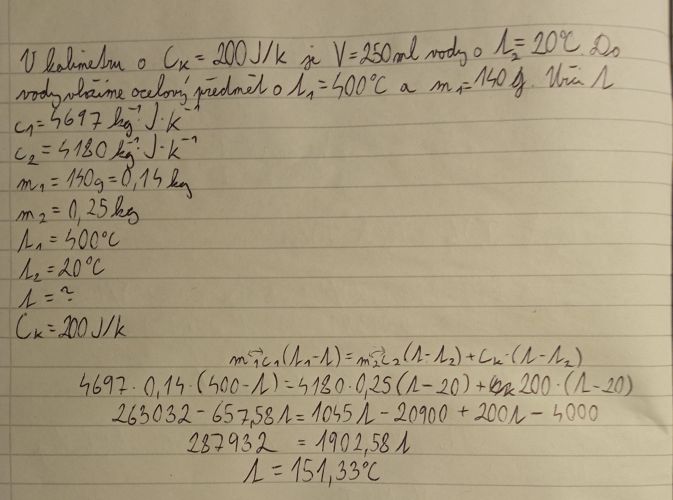 V kalimetru o Cₖ = 200 J/k je V = 250 ml vody o t₂ = 20°C. Do
vody vložíme ocelový předmět o t₁ = 400°C a m₁ = 140 g. Urči t
c₁ = 4697 kg⁻¹ · J · k⁻¹
c₂ = 4180 kg⁻¹ · J · k⁻¹
m₁ = 140g = 0,14 kg
m₂ = 0,25 kg
t₁ = 400°C
t₂ = 20°C
t = ?
Cₖ = 200 J/k
m₁c₁(t₁-t) = m₂c₂(t-t₂) + Cₖ·(t-t₂)
4697 · 0,14 · (400-t) = 4180 · 0,25(t-20) + 200 · (t-20)
263032 - 657,58t = 1045t - 20900 + 200t - 4000
287932 = 1902,58t
t = 151,33°C